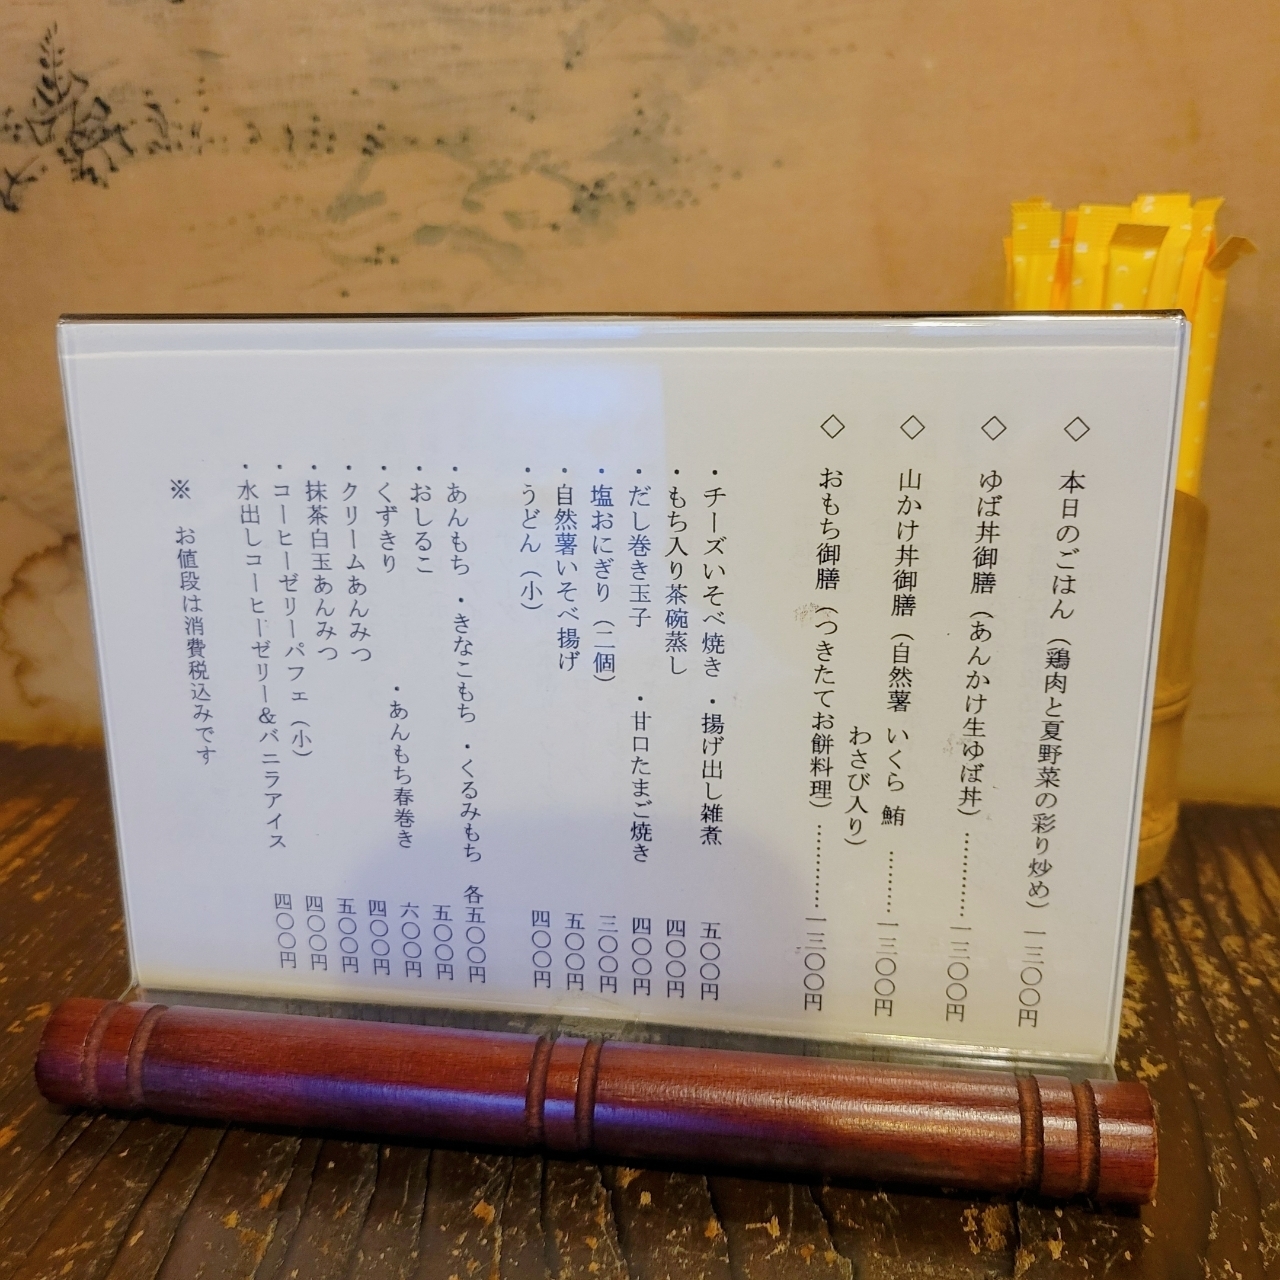 ◇ 本日のごはん（鶏肉と夏野菜の彩り炒め）一三〇〇円
◇ ゆば丼御膳（あんかけ生ゆば丼）…………一三〇〇円
◇ 山かけ丼御膳（自然薯 いくら 鮪
わさび入り）………一三〇〇円
◇ おもち御膳（つきたてお餅料理）…………一三〇〇円
・チーズいそべ焼き ・揚げ出し雑煮 五〇〇円
・もち入り茶碗蒸し 四〇〇円
・だし巻き玉子 ・甘口たまご焼き 四〇〇円
・塩おにぎり（二個） 三〇〇円
・自然薯いそべ揚げ 五〇〇円
・うどん（小） 四〇〇円
・あんもち ・きなこもち ・くるみもち 各五〇〇円
・おしるこ 五〇〇円
・くずきり ・あんもち春巻き 六〇〇円
・クリームあんみつ 四〇〇円
・抹茶白玉あんみつ 五〇〇円
・コーヒーゼリーパフェ（小） 四〇〇円
・水出しコーヒーゼリー＆バニラアイス 四〇〇円
※ お値段は消費税込みです